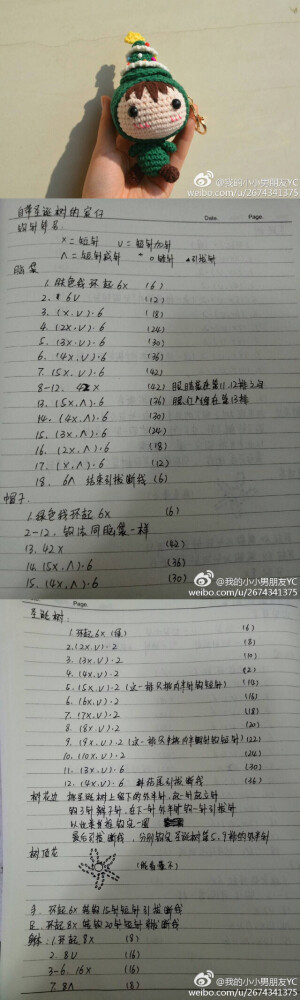 @我的小小男朋友YC
weibo.com/u/2674341375
自带圣诞树的宝仔
Date. Page.
钩针符号:
X=短针 V=短针加针
Λ=短针减针 0锁针 引拔针
脑袋
1.肤色线环起6X (6)
2. 6V (12)
3. (X.V)·6 (18)
4. (2X.V)·6 (24)
5. (3X.V)·6 (30)
6. (4X.V)·6 (36)
7. (5X.V)·6 (42)
8-12. 42X (42) 眼睛装在第11.12排之间
13. (5X.Λ)·6 (36) 腮红 在第13排
14. (4X.Λ)·6 (30)
15. (3X.Λ)·6 (24)
16. (2X.Λ)·6 (18)
17. (X.Λ)·6 (12)
18. 6Λ 结束引拔断线 (6)
帽子
1.绿色线环起6X (6)
2-12. 钩法同脑袋一样
13. 42X (42)
14. (5X.Λ)·6 (36)
15. (4X.Λ)·6 (30)
@我的小小男朋友YC
weibo.com/u/2674341375
Page.
圣诞树:
1.环起6X(绿) (6)
2.(2X.V)·2 (8)
3.(3X.V)·2 (10)
4.(4X.V)·2 (12)
5.(5X.V)·2 (这一排只挑内半针钩短针) (14)
6.(6X.V)·2 (16)
7.(7X.V)·2 (18)
8.(8X.V)·2 (20)
9.(9X.V)·2 (这一排只挑内半针钩短针) (22)
10.(10X.V)·2 (24)
11. (3X.V)·6 (30)
12. (4X.V)·6 引拔断线 (36)
树花边
钩3针锁子针,在下一针外半针钩一针引拔针
以此来重复钩完一圈
最后引拔断线,分别钩完圣诞树第5.9排的外半针
树顶花
手: 环起6X 钩15针短针引拔断线
足: 环起8X 钩20针短针 断线
身体: 1.环起8X (8)
2. 8V (16)
3-6. 16X (16)
7. 8Λ (8)
@我的小小男朋友YC
weibo.com/u/2674341375